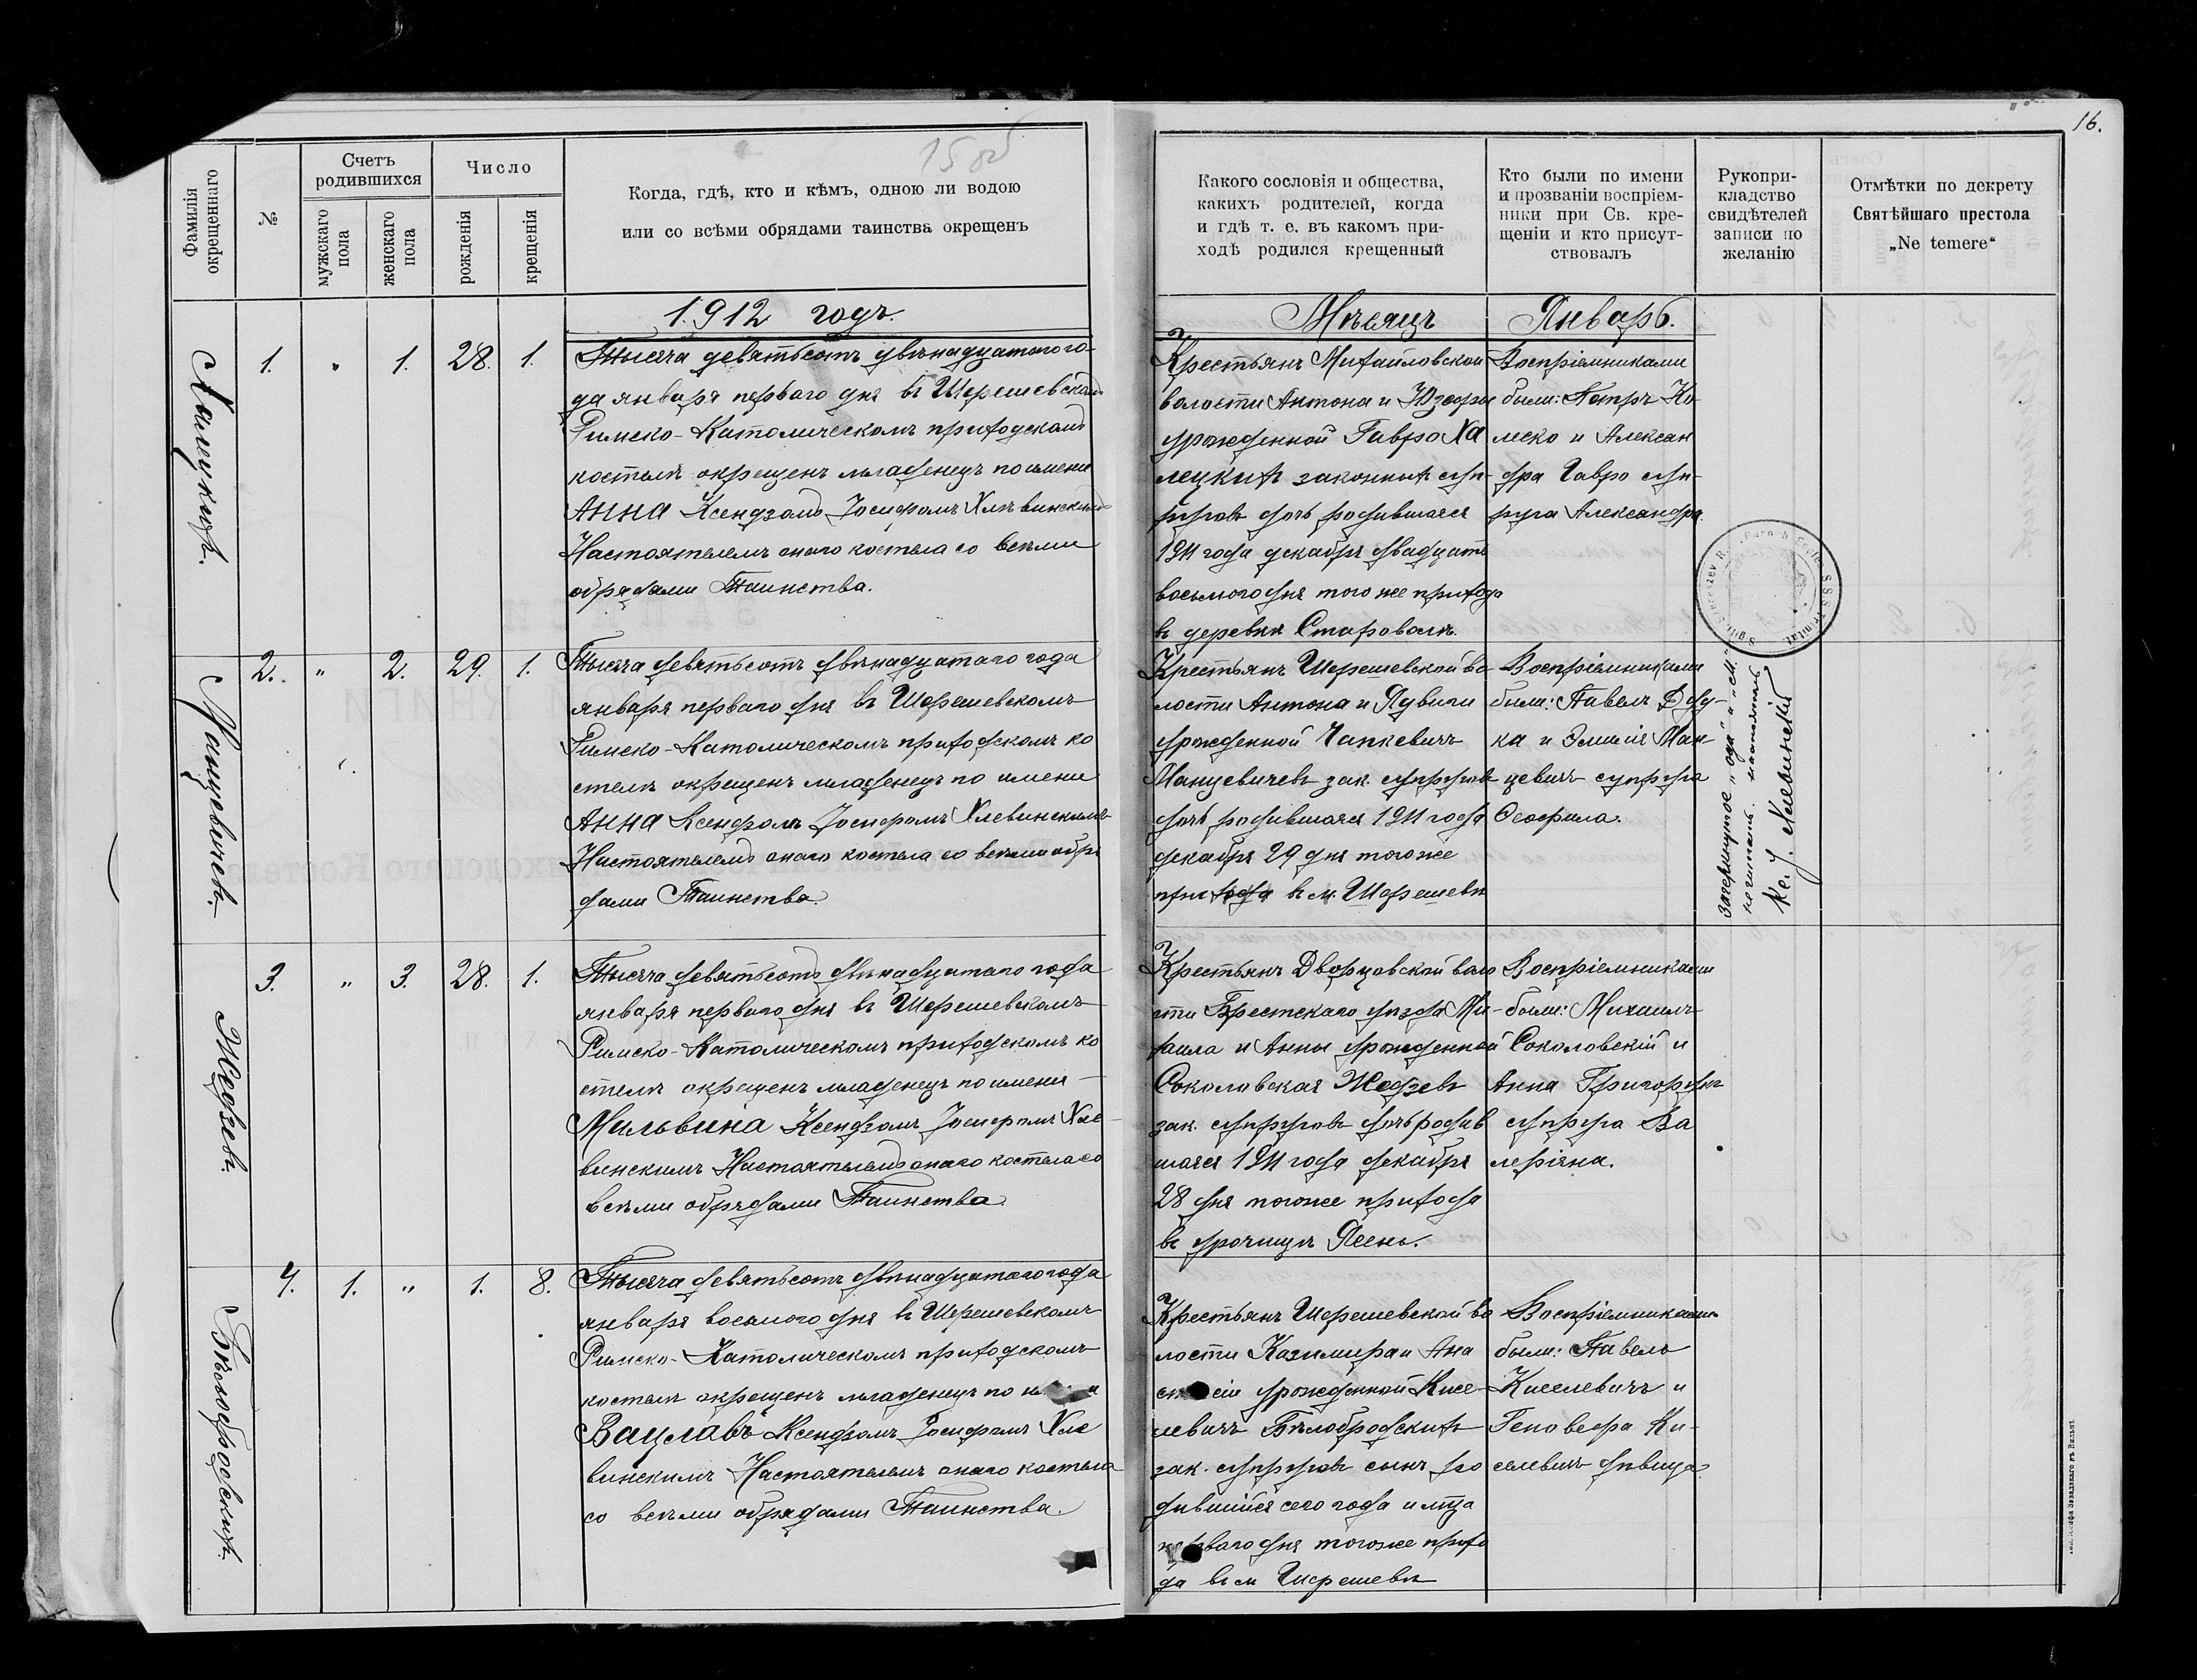 15 об
16.
Фамилія окрещеннаго
№
Счетъ родившихся
мужскаго пола
женскаго пола
Число
рожденія
крещенія
Когда, гдѣ, кто и кѣмъ, одною ли водою
или со всѣми обрядами таинства окрещенъ
Какого сословія и общества,
какихъ родителей, когда
и гдѣ т. е. въ какомъ при-
ходѣ родился крещенный
Кто были по имени
и прозваніи воспріем-
ники при Св. кре-
щеніи и кто присут-
ствовалъ
Рукопри-
кладство
свидѣтелей
записи по
желанію
Отмѣтки по декрету
Святѣйшаго престола
„Ne temere“
1912 годъ.
Мѣсяцъ Январь.
Халецкихъ.
1. " 1. 28. 1.
Тысяча девятьсотъ двѣнадцатаго го-
да января перваго дня въ Шерешевскомъ
Римско-Католическомъ приходскомъ
костелѣ окрещенъ младенецъ по имени
Анна Ксендзомъ Іосифомъ Хлѣвинскимъ
Настоятелемъ онаго костела со всѣми
обрядами Таинства.
Крестьянъ Михайловской
волости Антона и Юзефы
урожденной Гавро Ха
лецкихъ законныхъ суп-
руговъ дочь родившаяся
1911 года декабря двадцать
восьмого дня того же прихода
въ деревнѣ Староволѣ.
Воспріемниками
были: Петръ Ко-
леско и Алексан
дра Гавро суп-
руга Александра.
Манцевичевъ.
2. " 2. 29. 1.
Тысяча девятьсотъ двѣнадцатаго года
января перваго дня въ Шерешевскомъ
Римско-Католическомъ приходскомъ ко
стелѣ окрещенъ младенецъ по имени
Анна Ксендзомъ Іосифомъ Хлевинскимъ
Настоятелемъ онаго костела со всѣми обря
дами Таинства.
Крестьянъ Шерешевской во
лости Антона и Ядвиги
урожденной Чапкевичъ
Манцевичевъ зак. супруговъ
дочь родившаяся 1911 года
декабря 29 дня того же
прихода въ м. Шерешевѣ
Воспріемниками
были: Павелъ Дуд-
ка и Эмилія Ман-
цевичъ супруга
Ѳеофила.
зачеркнутое „ода“ и „м.“
не читать. настоятель
Кс. І. Хлевинскій
Жедзевъ.
3. " 3. 28. 1.
Тысяча девятьсотъ двѣнадцатаго года
января перваго дня въ Шерешевскомъ
Римско-Католическомъ приходскомъ ко
стелѣ окрещенъ младенецъ по имени
Мальвина Ксендзомъ Іосифомъ Хле-
винскимъ Настоятелемъ онаго костела со
всѣми обрядами Таинства.
Крестьянъ Дворцовской воло
сти Брестскаго уѣзда Ми-
хаила и Анны урожденной
Соколовская Жедзевъ
зак. супруговъ дочь родив
шаяся 1911 года декабря
28 дня того же прихода
въ урочищѣ Ясень.
Воспріемниками
были: Михаилъ
Соколовскій и
Анна Григорукъ
супруга Ва
леріяна.
Бѣлобродскихъ.
4. 1. " 1. 8.
Тысяча девятьсотъ двѣнадцатаго года
января восьмого дня въ Шерешевскомъ
Римско-Католическомъ приходскомъ
костелѣ окрещенъ младенецъ по
Вацлавъ Ксендзомъ Іосифомъ Хле
винскимъ Настоятелемъ онаго костела
со всѣми обрядами Таинства.
Крестьянъ Шерешевской во
лости Казимира и Ана
сіи урожденной Кисе-
левичъ Бѣлобродскихъ
зак. супруговъ сынъ ро
дившійся сего года и мца
перваго дня того же прихо
да въ м Шерешевѣ
Воспріемниками
были: Павелъ
Киселевичъ и
Геновефа Ки-
селевичъ дѣвица